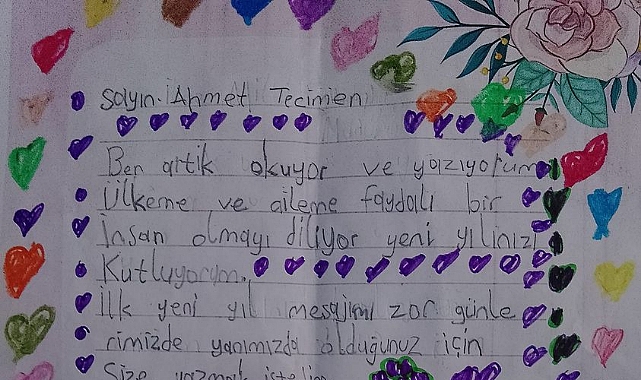 Sayın. Ahmet Tecimen
Ben artik okuyor ve yazıyorum
Ülkeme ve aileme faydalı bir
İnsan olmayı diliyor yeni yılınızı
Kutluyorum.
İlk yeni yıl mesajımı zor günle
rimizde yanımızda olduğunuz için
Size yazmak istedim